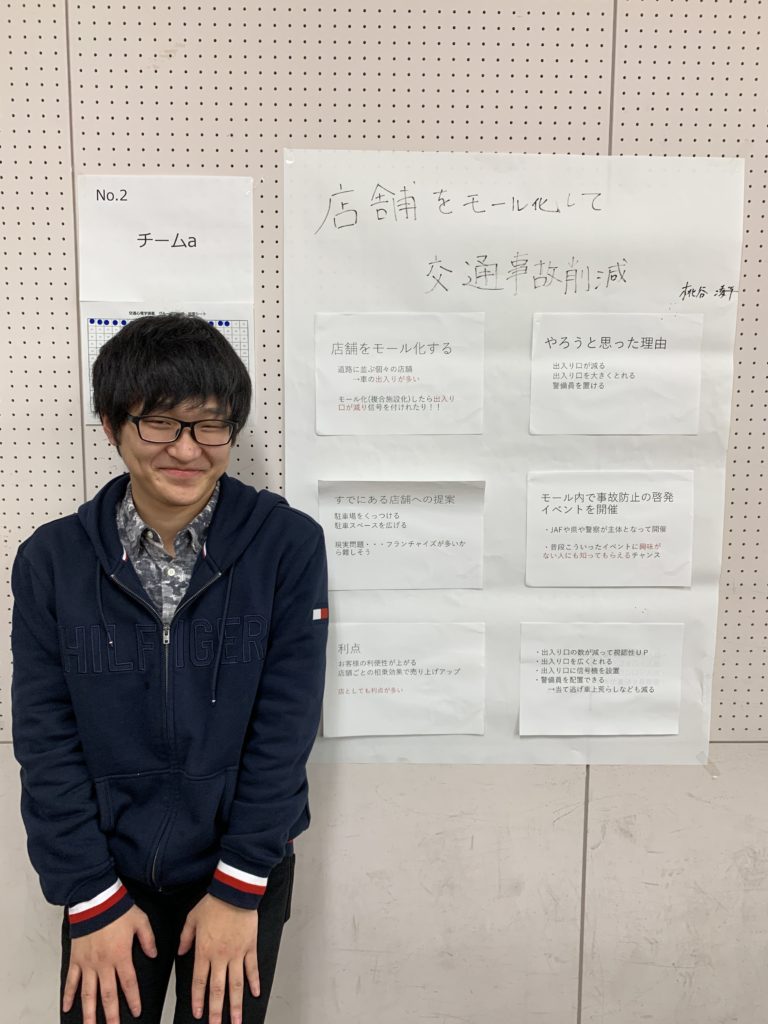 No.2
チームa
店舗をモール化して
交通事故削減
店舗をモール化する
道路に並ぶ個々の店舗
→車の出入りが多い
モール化(複合施設化)したら出入り
口が減り信号を付けれたり！！
やろうと思った理由
出入り口が減る
出入り口を大きくとれる
警備員を置ける
すでにある店舗への提案
駐車場をくっつける
駐車スペースを広げる
現実問題・・・フランチャイズが多いか
ら難しそう
モール内で事故防止の啓発
イベントを開催
・JAFや県や警察が主体となって開催
・普段こういったイベントに興味が
ない人にも知ってもらえるチャンス
利点
お客様の利便性が上がる
店舗ごとの相乗効果で売り上げアップ
店としても利点が多い
・出入り口の数が減って視認性UP
・出入り口を広くとれる
・出入り口に信号機を設置
・警備員を配置できる
→当て逃げ車上荒らしなども減る
HILFIGER